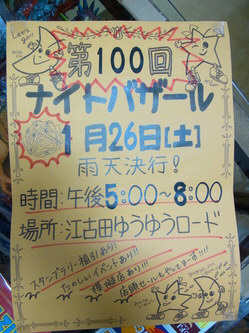 第100回
ナイトバザール
1月26日[土]
雨天決行!
時間:午後5:00~8:00
場所:江古田ゆうゆうロード
スタンプラリー福引あり!
たのしいイベントあり!!
模擬店あり!!!
店頭セールもやってまーす!!!